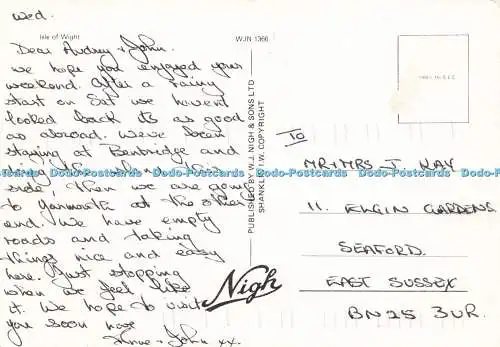 Wed.
Isle of Wight
WJN 1366
Dear Audrey & John.
we hope you enjoyed your
weekend. After a rainy
start on Sat we havent
looked back its as good
as abroad. Weve been
staying at Bembridge and
side then we are going
to Yarmouth at the other
end. We have empty
roads and taking
things nice and easy
here. Just stopping
when we feel like
it. We hope to visit
you soon love
Anne & John xx.
PUBLISHED BY W.J. NIGH & SONS LTD
SHANKLIN I.W. COPYRIGHT
Nigh
To
MR + MRS J. KAY
11. ELGIN GARDENS
SEAFORD.
EAST SUSSEX
BN25 3UR.
Dodo-Postcards Dodo-Postcards Dodo-Postcards Dodo-Postcards Dodo-Postcards